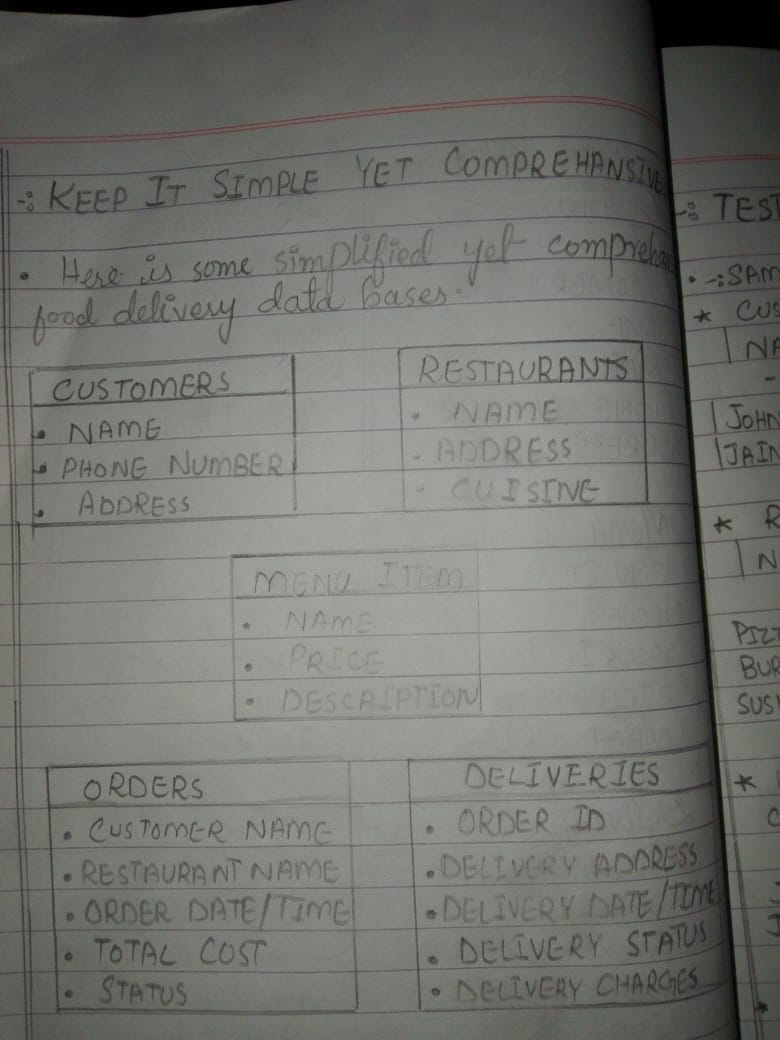 -: KEEP IT SIMPLE YET COMPREHANSIVE
• Here is some simplified yet comprehan
food delivery data bases.
CUSTOMERS
• NAME
• PHONE NUMBER
• ADDRESS
RESTAURANTS
• NAME
• ADDRESS
• CUISINE
MENU ITEM
• NAME
• PRICE
• DESCRIPTION
ORDERS
• CUSTOMER NAME
• RESTAURANT NAME
• ORDER DATE/TIME
• TOTAL COST
• STATUS
DELIVERIES
• ORDER ID
• DELIVERY ADDRESS
• DELIVERY DATE/TIME
• DELIVERY STATUS
• DELIVERY CHARGES
-: TEST
• -: SAM
* CUS
| NA
-
| JOHN
| JAIN
* R
| N
PIZZ
BUR
SUS
*
C